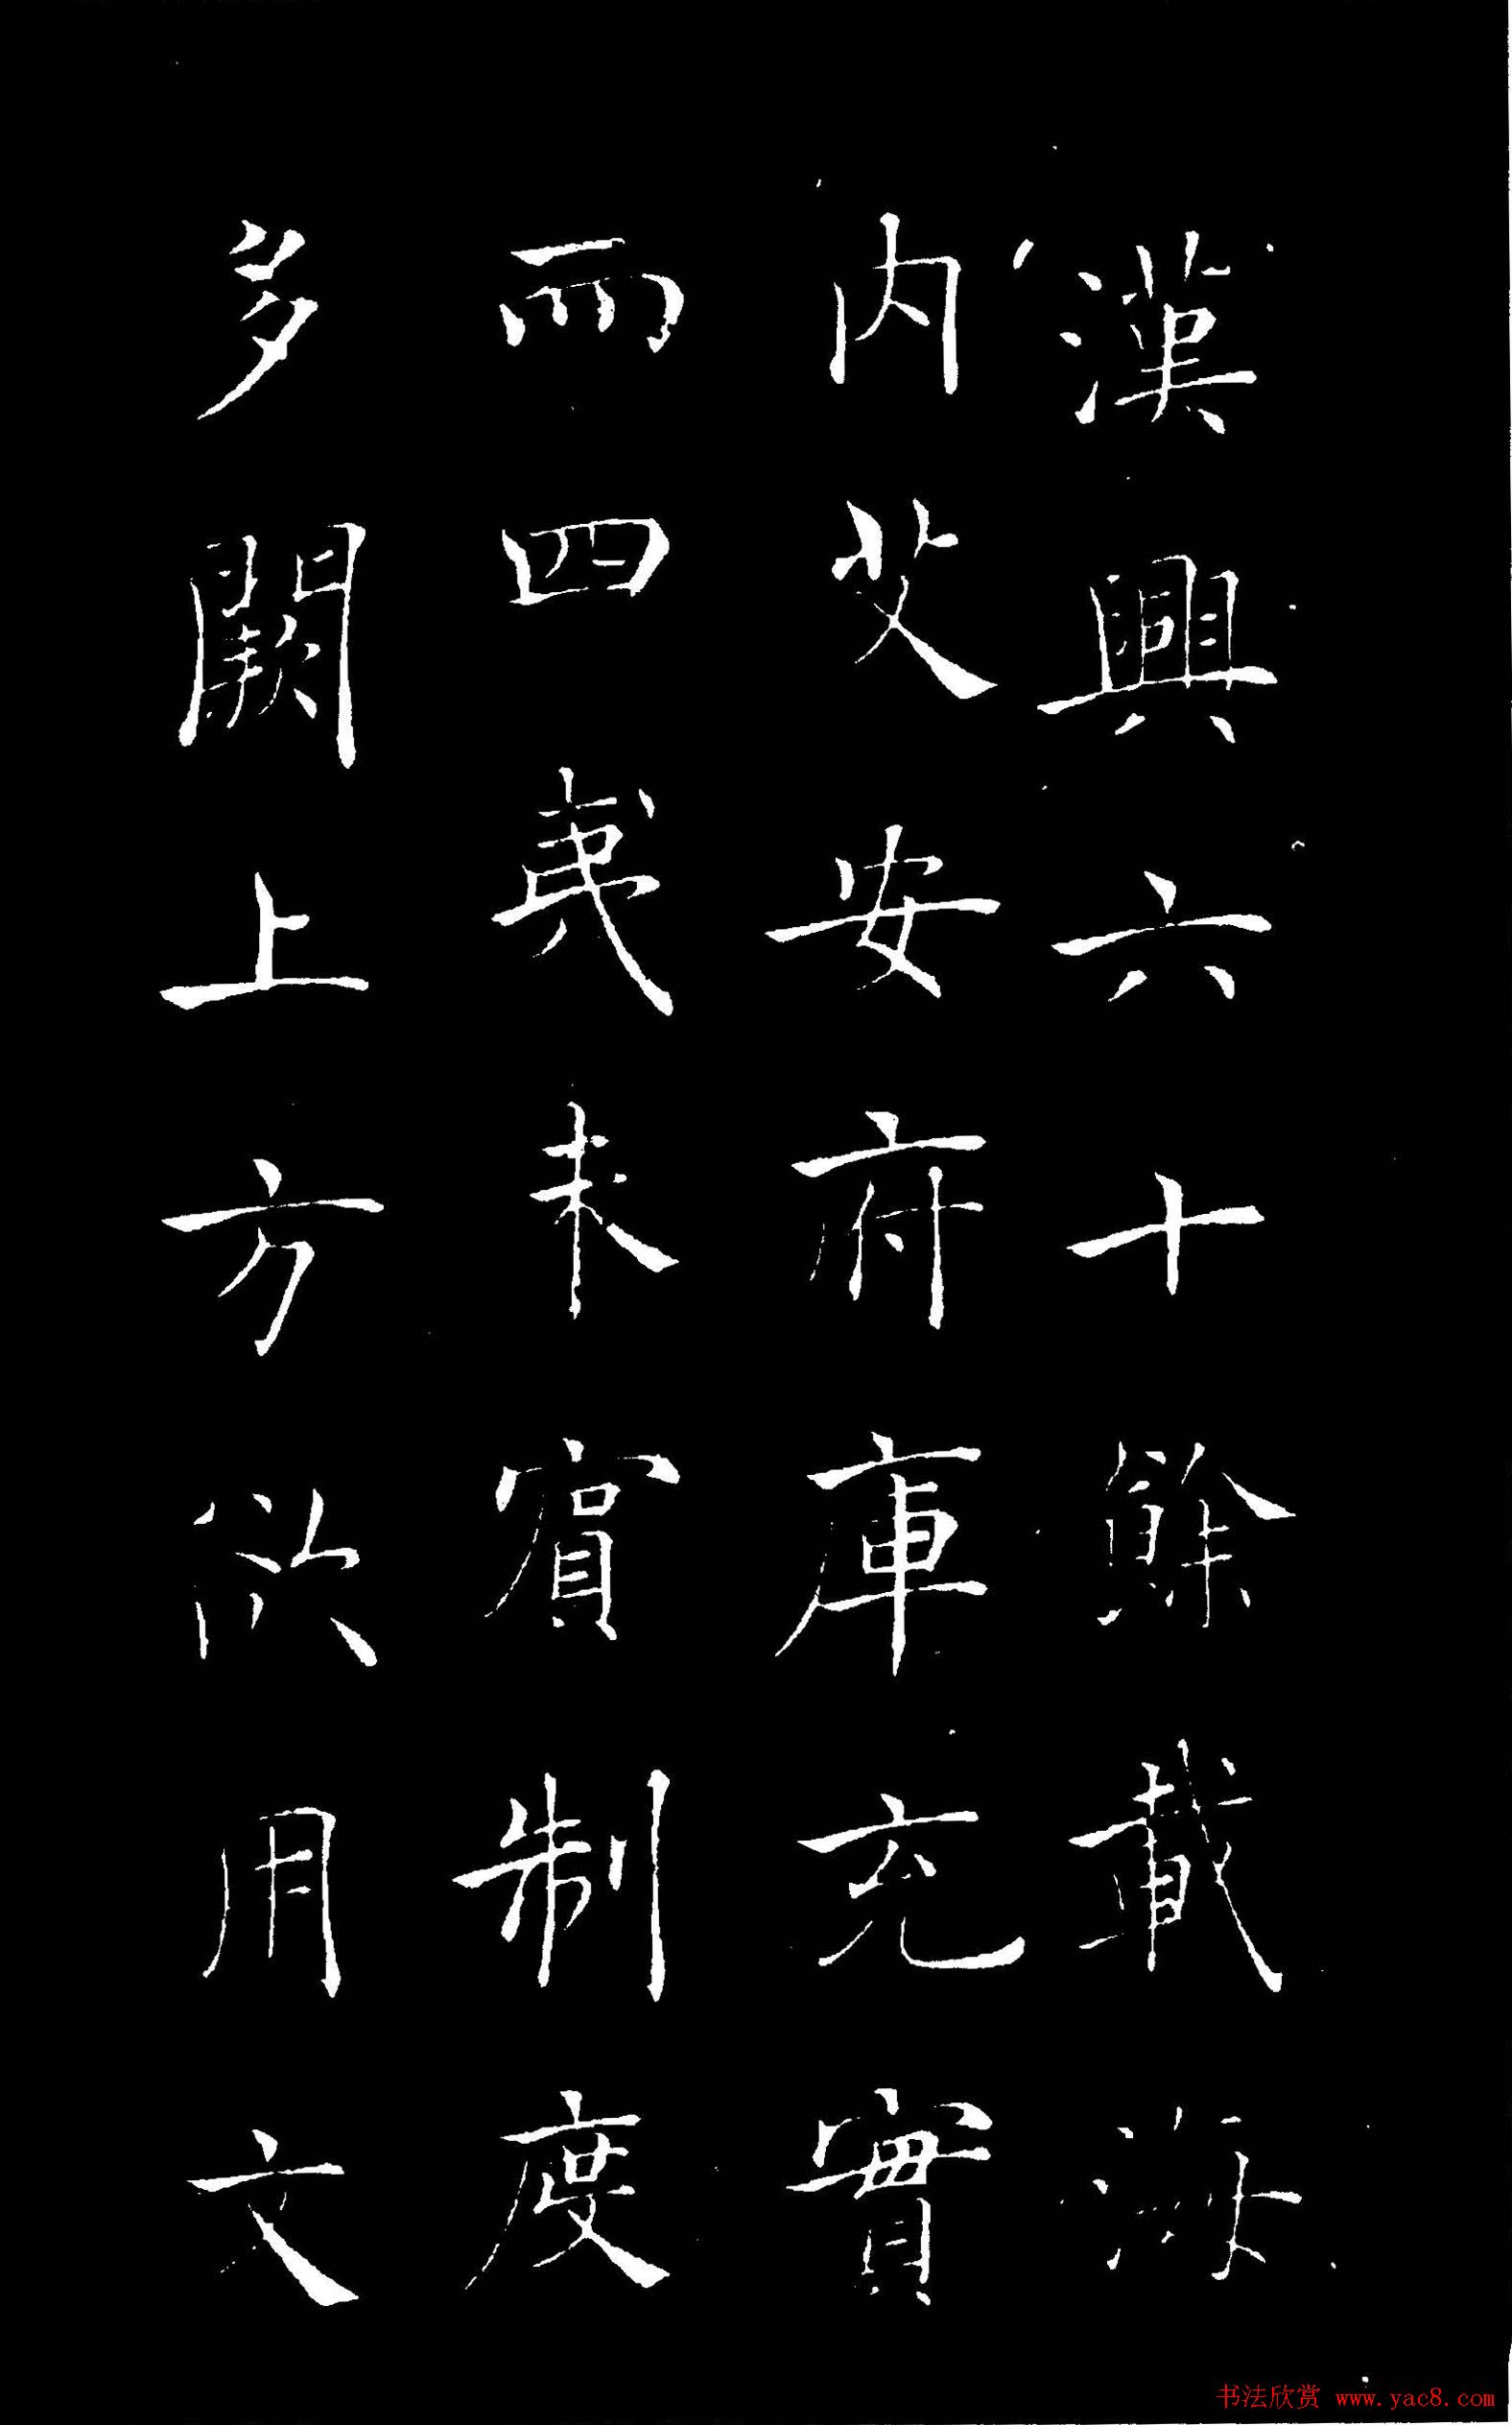 漢興六十餘載海
内艾安府庫充實
而四夷未賓制度
多闕上方欲用文
书法欣赏 www.yac8.com